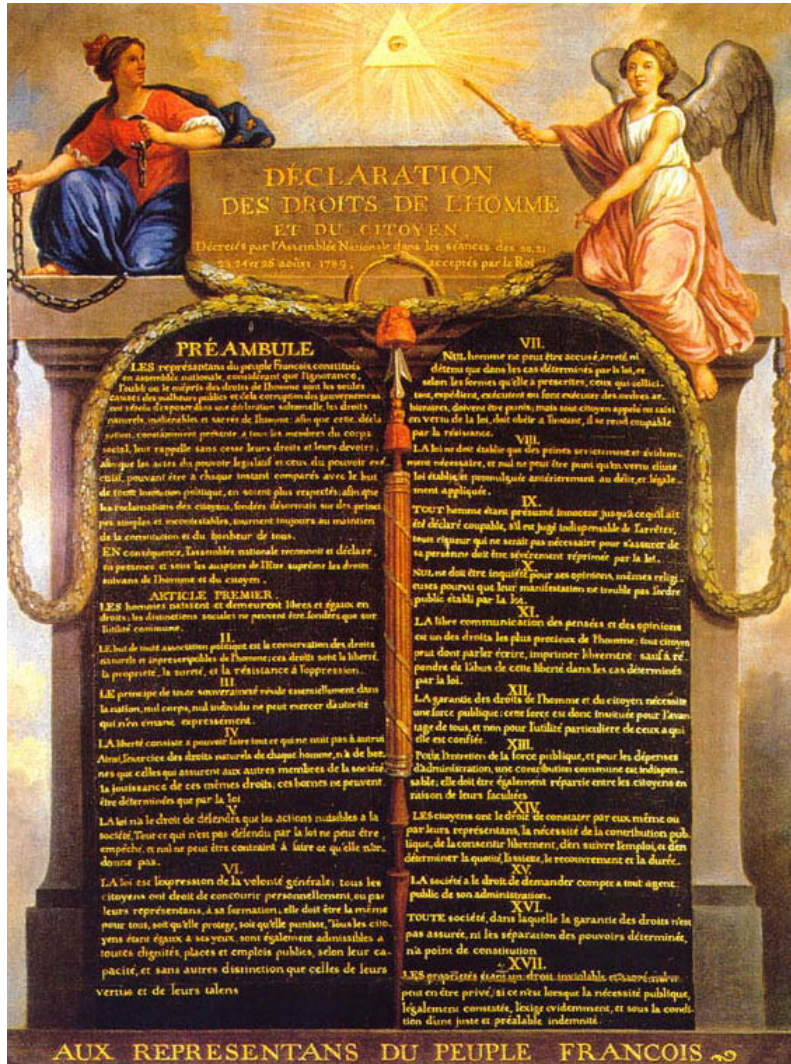 DÉCLARATION
DES DROITS DE L'HOMME
ET DU CITOYEN
Décretés par l'Assemblée Nationale dans les séances des 20, 21
23, 24 et 26 août 1789, acceptés par le Roi
PRÉAMBULE
LES représentans du peuple François constitués
en assemblée nationale, considérant que l'ignorance,
l'oubli ou le mépris des droits de l'homme sont les seules
causes des malheurs publics et de la corruption des gouvernemens
ont résolu d'exposer dans une déclaration solemnelle, les droits
naturels, inaliénables et sacrés de l'homme; afin que cette décla
ration, constamment présente a tous les membres du corps
social, leur rappelle sans cesse leurs droits et leurs devoirs;
afin que les actes du pouvoir legislatif et ceux du pouvoir exé
cutif, pouvant être à chaque instant comparés avec le but
de toute institution politique, en soient plus respectés; afin que
les reclamations des citoyens, fondées désormais sur des princi
pes simples et incontestables, tournent toujours au maintien
de la constitution et du bonheur de tous.
EN conséquence, l'assemblée nationale reconnoit et déclare
en presence et sous les auspices de l'Etre suprême les droits
suivans de l'homme et du citoyen.
ARTICLE PREMIER.
LES hommes naissent et demeurent libres et égaux en
droits; les distinctions sociales ne peuvent être fondées que sur
l'utilité commune.
II.
LE but de toute association politique est la conservation des droits
naturels et inprescriptibles de l'homme; ces droits sont la liberté,
la propriété, la sureté, et la résistance à l'oppression.
III.
LE principe de toute souveraineté réside essentiellement dans
la nation, nul corps, nul individu ne peut exercer d'autorité
qui n'en émane expressément.
IV.
LA liberté consiste a pouvoir faire tout ce qui ne nuit pas à autrui
Ainsi, l'exercice des droits naturels de chaque homme, n'a de bor-
nes que celles qui assurent aux autres membres de la société
la jouissance de ces mêmes droits; ces bornes ne peuvent
être déterminées que par la loi
V.
LA loi n'a le droit de défendre que les actions nuisibles a la
société. Tout ce qui n'est pas défendu par la loi ne peut être
empêché, et nul ne peut être contraint à faire ce qu'elle n'or-
donne pas.
VI.
LA loi est l'expression de la volonté générale; tous les
citoyens ont droit de concourir personnellement, ou par
leurs représentans, à sa formation; elle doit être la même
pour tous, soit qu'elle protege, soit qu'elle punisse. Tous les cito
yens étant égaux à ses yeux, sont également admissibles a
toutes dignités, places et emplois publics, selon leur ca-
pacité, et sans autres distinction que celles de leurs
vertus et de leurs talens
VII.
NUL homme ne peut être accusé, arreté ni
détenu que dans les cas déterminés par la loi, et
selon les formes qu'elle a prescrites, ceux qui sollici-
tent, expédient, exécutent ou font exécuter des ordres ar-
bitraires, doivent être punis; mais tout citoyen appelé ou saisi
en vertu de la loi, doit obéir a l'instant, il se rend coupable
par la résistance.
VIII.
LA loi ne doit établir que des peines strictement et évidem-
ment nécessaire, et nul ne peut être puni qu'en vertu d'une
loi établie et promulguée antérierement au délit, et légale
ment appliquée.
IX.
TOUT homme étant présumé innocent jusqu'à ce qu'il ait
été déclaré coupable, s'il est jugé indispensable de l'arrêter,
toute rigueur qui ne serait pas nécessaire pour s'assurer de
sa personne doit être sévèrement réprimée par la loi.
X.
NUL ne doit être inquiété pour ses opinions, mêmes religi
euses pourvu que leur manifestation ne trouble pas l'ordre
public établi par la loi.
XI.
LA libre communication des pensées et des opinions
est un des droits les plus precieux de l'homme; tout citoyen
peut dont parler écrire, imprimer librement: sauf à ré-
pondre de l'abus de cette liberté dans les cas déterminés
par la loi.
XII.
LA garantie des droits de l'homme et du citoyen nécessite
une force publique; cette force est donc instituée pour l'avan
tage de tous, et non pour l'utilité particuliere de ceux a qui
elle est confiée.
XIII.
Pour l'entretien de la force publique, et pour les dépenses
d'administration, une contribution commune est indispen-
sable; elle doit être également répartie entre les citoyens en
raison de leurs facultées
XIV.
LES citoyens ont le droit de constater par eux même ou
par leurs représentans, la nécessité de la contribution pub-
lique, de la consentir librement, d'en suivre l'emploi, et d'en
déterminer la quotité, l'assiette, le recouvrement et la durée.
XV.
LA société a le droit de demander compte a tout agent
public de son administration.
XVI.
TOUTE société, dans laquelle la garantie des droits n'est
pas assurée, ni les séparation des pouvoirs déterminée,
n'a point de constitution
XVII.
LES propriétés étant un droit inviolable et sacré, nul ne
peut en être privé, si ce n'est lorsque la nécessité publique,
légalement constatée, l'exige evidemment, et sous la condi-
tion d'une juste et préalable indemnité.
AUX REPRESENTANS DU PEUPLE FRANCOIS